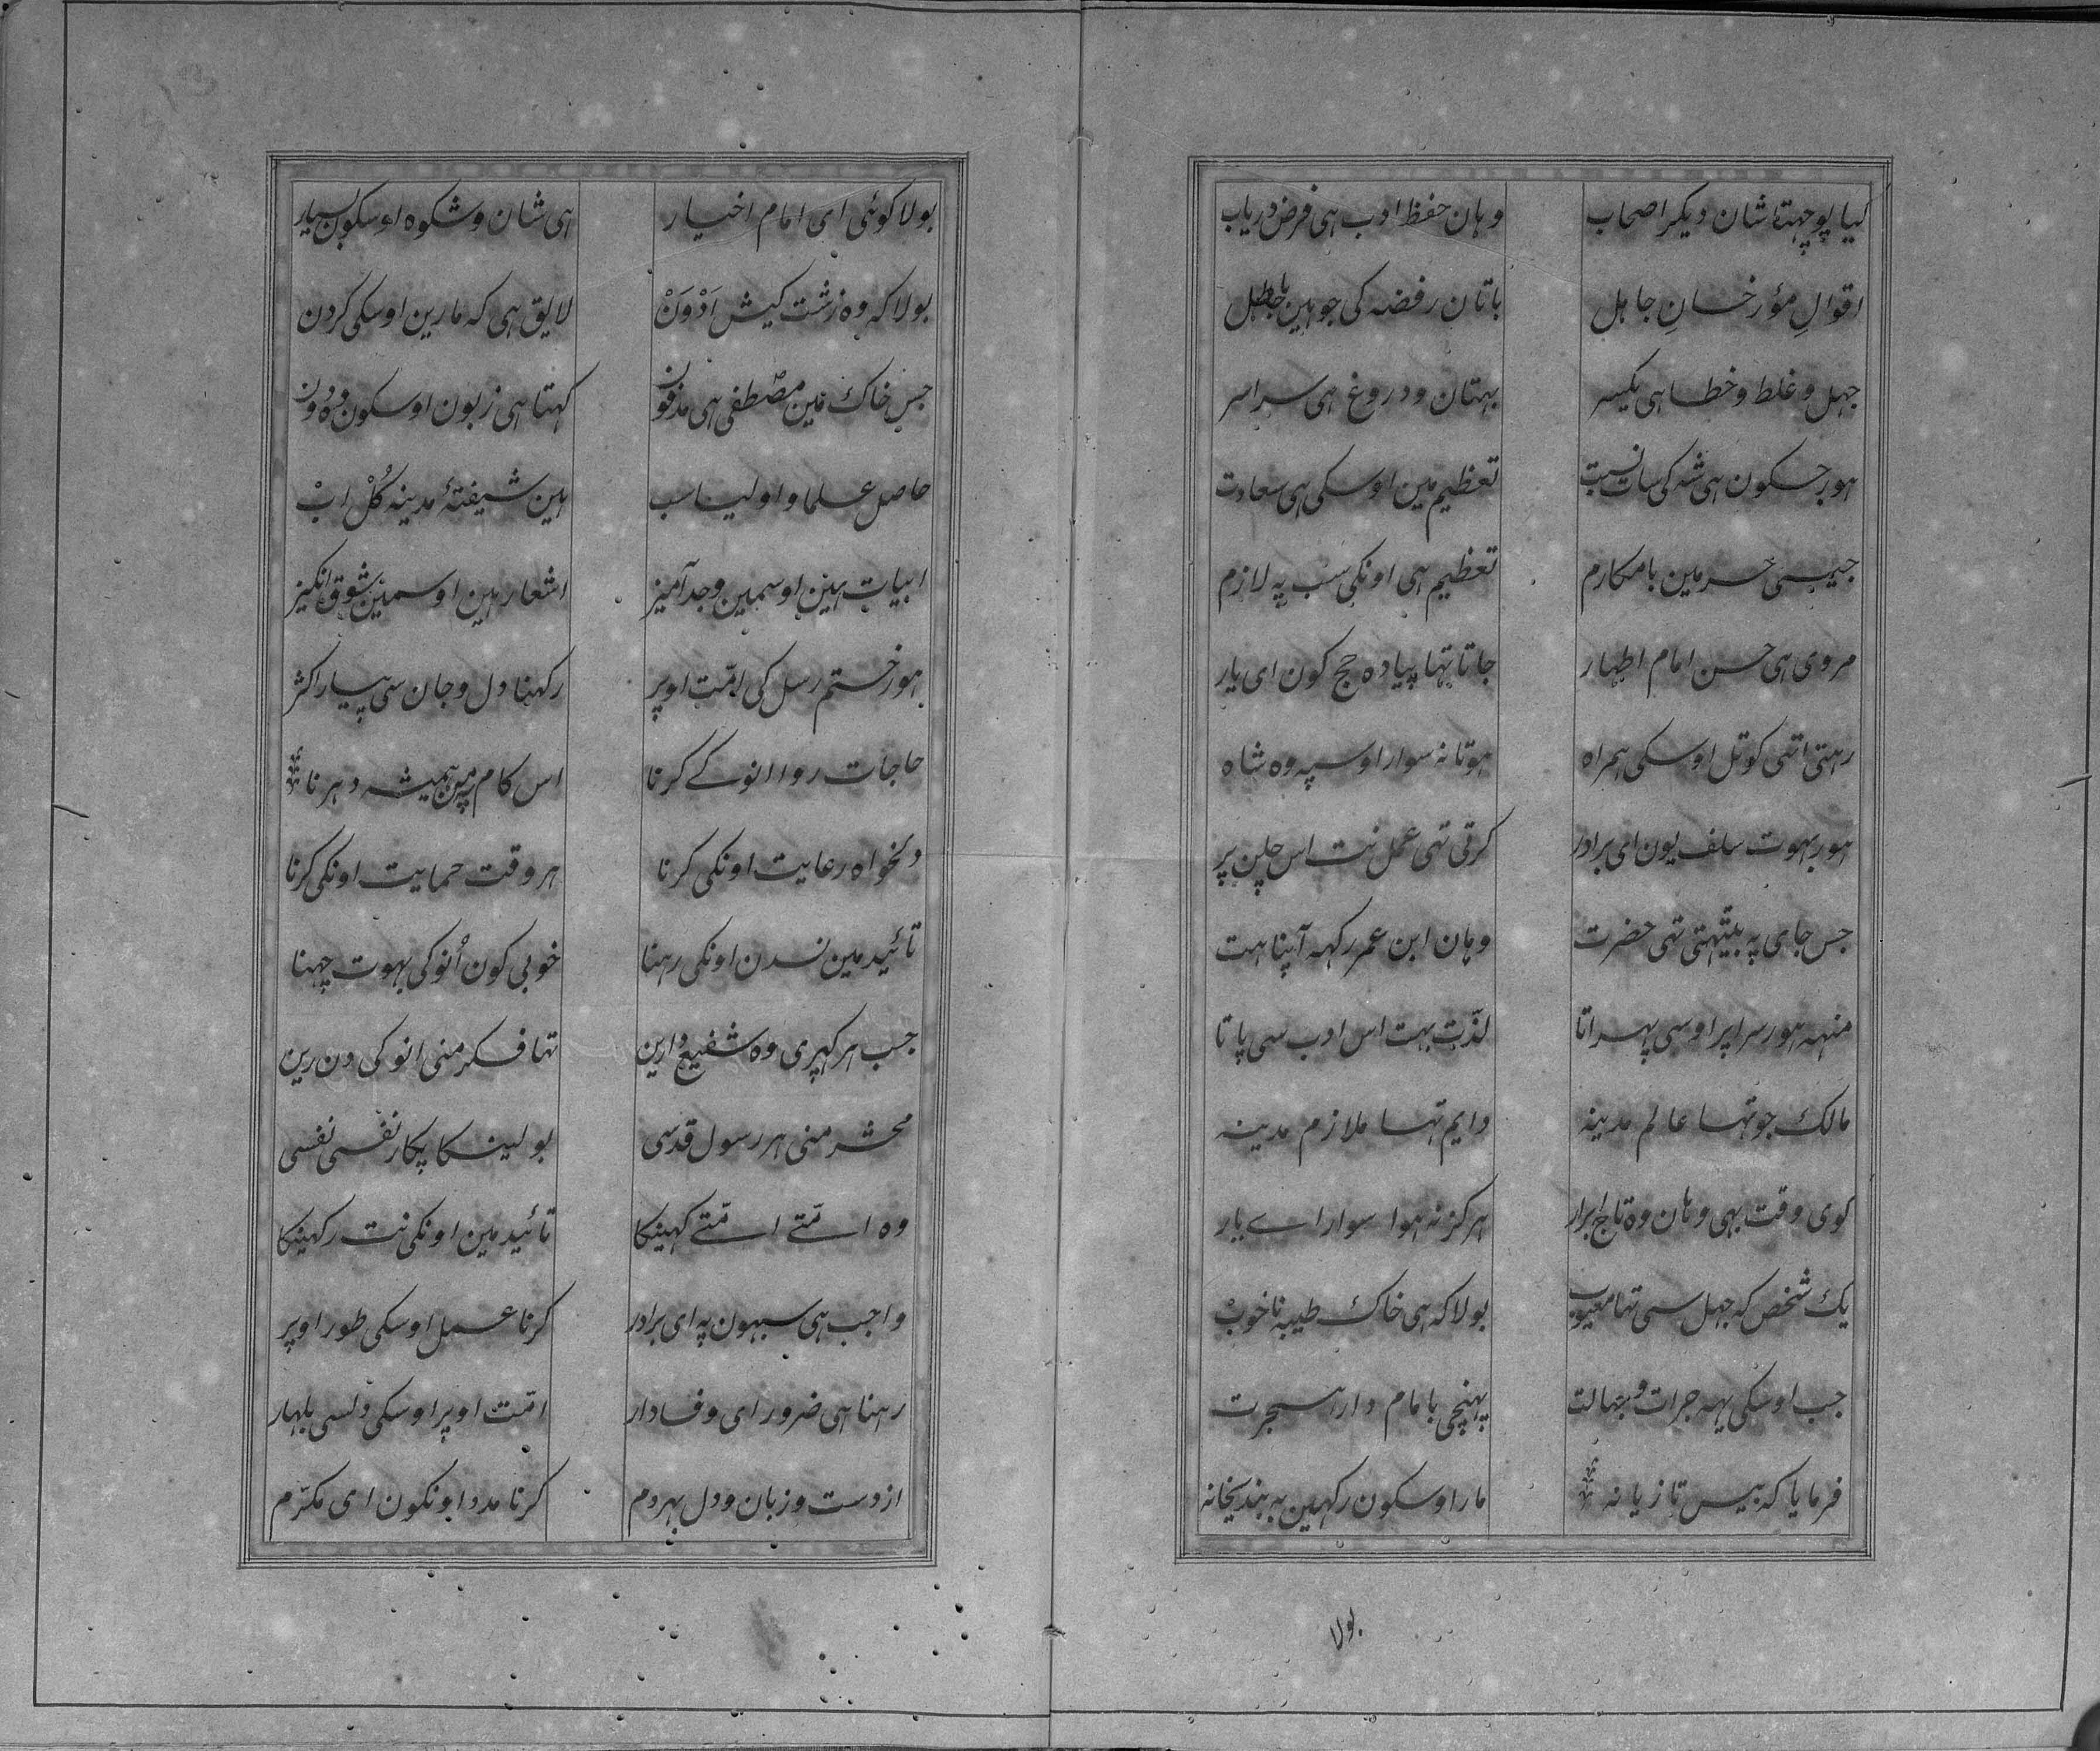 کیا پوچهتا شان دیکر اصحاب وہان حفظ ادب ہی فرض دریاب
اقوالِ مؤرخانِ جاہل باتان رفضہ کی جو ہین باطل
جہل و غلط و خطا ہی یکسر بہتان و دروغ ہی سراسر
ہور جسکون ہی شہ کی سات نسبت تعظیم مین اوسکی ہی سعادت
جیسی حرمین با مکارم تعظیم ہی اونکی سب پہ لازم
مروی ہی حسن امام اطہار جاتا تہا پیادہ حج کون ای یار
رہتی اتہی کوتل اوسکی ہمراہ ہوتا نہ سوار اوسپہ وہ شاہ
ہور بہوت سلف یون ای برادر کرتی تہی عمل نت اس چلن پر
جس جای پہ بیٹہتی تہی حضرت وہان ابن عمر رکہہ آپنا ہت
منہہ ہور سر اپر اوسی پہراتا لذّت بہت اس ادب سی پاتا
مالک جو تہا عالم مدینہ دایم تہا ملازم مدینہ
کوی وقت بہی وہان وہ تاج ابرار ہرکز نہ ہوا سوار اے یار
یک شخص کہ جہل سی تہا معیوب بولا کہ ہی خاک طیبہ نا خوبْ
جب اوسکی یہہ جرات و جہالت پہنچی بامام دار ہجرت
فرمایا کہ بیس تازیانہ مار اوسکون رکہین بہ بندیخانہ
بولا
بولا کوئی ای امام اخیار ہی شان و شکوہ اوسکون بسیار
بولا کہ وہ زشت کیش اَدْوَنْ لایق ہی کہ مارین اوسکی کردن
جس خاک مین مصطفی ہی مدفون کہتا ہی زبون اوسکون وہ دون
حاصل علما و اولیا سب ہین شیفتۂ مدینہ کُلْ ابْ
ابیات ہین اوسمین وجد آمیز اشعار ہین اوسمین شوق انکیز
ہور ختم رسل کی امّت اوپر رکہنا دل و جان سی پیار اکثر
حاجات روا انو کے کرنا اس کام مین ہمیشہ دہرنا
دلخواہ رعایت اونکی کرنا ہر وقت حمایت اونکی کرنا
تائید مین نسدن اونکی رہنا خوبی کون اُنو کی بہوت چہنا
جب ہر کہری وہ شفیع دارین تہا فکر منی انو کی دن رین
محشر منی ہر رسول قدسی بولینکا پکار نفسی نفسی
وہ امّتے امّتے کہینکا تائید مین اونکی نت رکہینکا
واجب ہی سبہون پہ ای برادر کرنا عمل اوسکی طور اوپر
رہنا ہی ضرور ای وفادار امّت اوپر اوسکی دلسی بلہار
از دست و زبان و دل بہر دم کرنا مدد اونکون ای مکرّم